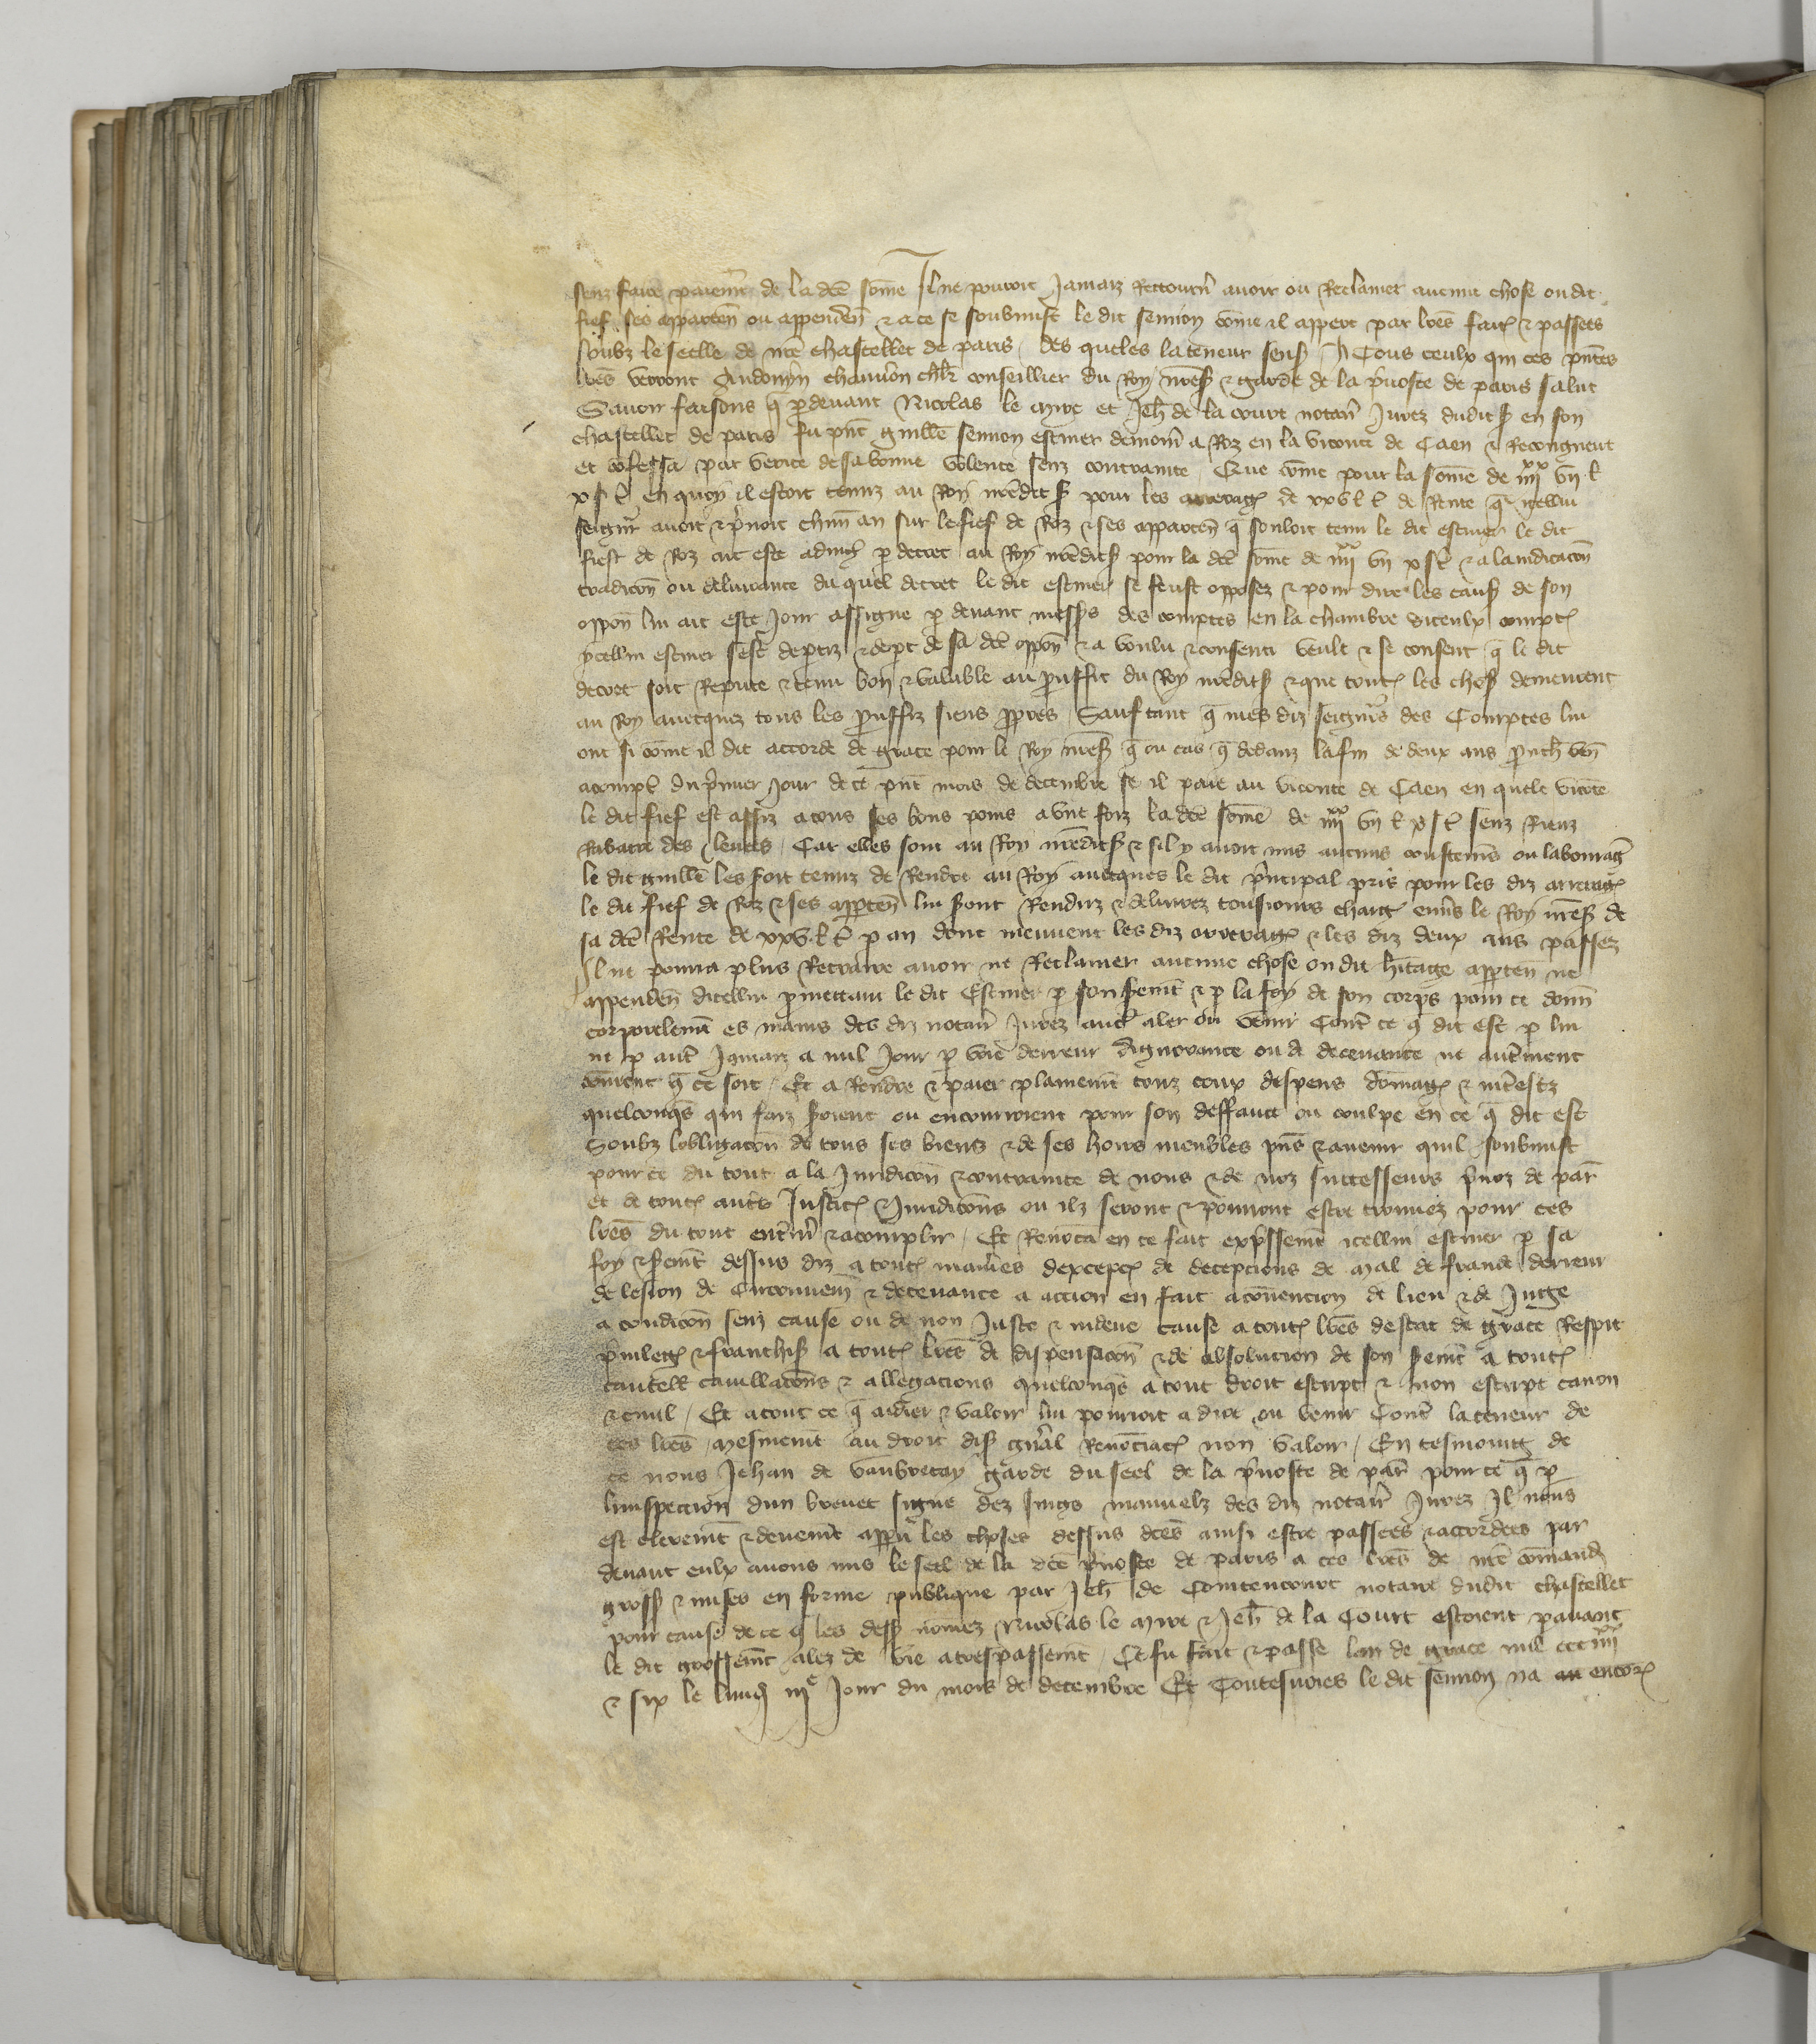 senz faire paiemt de la dce some Il ne pouroit Jamaiz Retourn avoir ou Reclamer aucune chose oudit
fief ses apparten ou appenden & a ce se soubmist le dit semion come il appert par lres faic & passees
soubz le seelle de nre chastellet de paris / des queles la teneur sensuit A Tous ceulx qui ces pntes
lres verront Audouyn chauvon chlr conseillier du Roy nres & garde de la pvoste de paris salut
Savoir faisons q pdevant Nicolas le myre et Jeh de la court notair Jurez dudit s en son
chastellet de paris fu pnt guille semion escuier demour a Roz en la viconte de Caen & Recongneut
et cofessa par verite de sa bonne volente senz contrainte / Que come pour la some de iiiixx vii l
x s t en quoy il estoit tenuz au Roy nredit s pour les arrerag de xxv l t de Rente q icellui
seigneur avoit & pnoit chun an sur le fief de Roz & ses apparten q souloit tenir le dit escuier le dit
fief de Roz eut este adiug p decret au Roy nredit s pour la dce some de iiiixx vii l x s t & a laiudicacon
tradicon ou delivrance du quel decret le dit escuier se feust opposez & pour dire les caus de son
oppon lui ait este Jour assigne p devant messrs des comptes en la chambre diceulx compt
ycellui escuier sest departiz & depart de sa dce oppon & a voulu & consenti veult & se consent q le dit
decret soit Repute & tenu bon & valable au prouffit du Roy nredit s & que tout les chos demeurent
au Roy avecquez tous les prouffiz siens ppres / Sauf tant q mes diz seigneurs des Comptes lui
ont si come il dit accorde de grace pour le Roy nres q ou cas q dedanz la fin de deux ans pouch ven
a compt du pmier Jour de ce pnt mois de decembre se il paie au viconte de Caen en quele viconte
le dit fief est assiz a tous ses bons poins a une foiz la dce some de iiiixx vii l x s t senz Rienz
Rabatre des levees / Car elles sont au Roy nredit s & sil y avoit mis aucuns coustemens ou labourag
le dit guille les soit tenuz de Rendre au Roy avecques le dit pncipal pris pour les diz arrerag
le dit fief de Roz & ses apparten lui sont Renduz & delivrez tousiours charg envrs le Roy nres de
sa dce Rente de xxv l t p an dont meuvent les diz arrerag & les diz deux ans passez
Il ne pourra plus Retraire avoir ne Reclamer aucune chose oudit heritage apparten ne
appenden dicellui pmettant le dit Escuier p son serment & p la foy de son corps pour ce donn
corporelement es mains des diz notair Jurez non aler ou venir Contre ce q dit est p lui
ne p autre Jamaiz a nul Jour p voie derreur dignorance ou de decevance ne autrement
coment q ce soit / Et a Rendre & paier plainement touz coux despens domag & interestz
quelconqs qui faiz seroient ou encourroient pour son deffaut ou coulpe en ce q dit est
Soubz lobligacon de tous ses biens & de ses hoirs meubles pns & avenir quil soubmist
pour ce du tout a la Juridicon & contrainte de nous & de noz successeurs pvoz de par
et de tout autres Justic & Juridicons ou ilz seront & pourront estre trouvez pour ces
lres du tout enterin & acomplir / Et Renonca en ce fait expssement icellui escuier p sa
foy & serment dessus diz a tout manieres dexcepc de decepcions de mal de fraude derreur
de lesion de Circonven & decevance a accion en fait a convencion de lieu & de Juge
a condicon senz cause ou de non Juste & indeue cause a tout lres destat de grace Respit
pvileg & franchis a tout lres de dispensacon & de absolucion de son serment a tout
cautell cavillacons & allegacions quelconqs a tout droit escript & non escript canon
& civil / Et a tout ce q aidier & valoir lui pourroit a dire ou venir Contre la teneur de
ces lres / mesmement au droit dis gnral Renonciac non valoir / En tesmoing de
ce nous Jehan de vaubrecay garde du seel de la pvoste de par pour ce q p
linspection dun brevet signe dez sings manuelz des diz notair Jurez Il nous
est clerement & deuement appru les choses dessus dces ainsi estre passees & accordees par
devant eulx avons mis le seel de la dce pvoste de paris a ces lres de nre comand
gross & mises en forme publique par Jeh de Contencourt notaire dudit chastellet
pour cause de ce q les dess nomez Nicolas le myre & Jeh de la Court estoient pavant
le dit grossement alez de vie a trespassement / Ce fu fait & passe lan de grace mil ccc iiiixx
& six le lundi iiie Jour du mois de decembre Et Toutesvoies le dit semion na encor